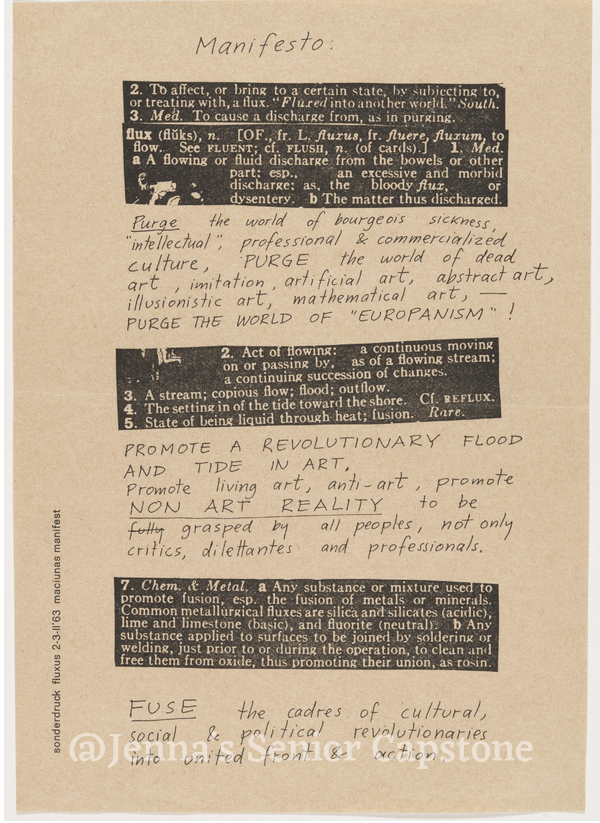 Manifesto:
2. To affect, or bring to a certain state, by subjecting to,
or treating with, a flux. "Fluxed into another world." South.
3. Med. To cause a discharge from, as in purging.
flux (flŭks), n. [OF., fr. L. fluxus, fr. fluere, fluxum, to
flow. See FLUENT; cf. FLUSH, n. (of cards).] 1. Med.
a A flowing or fluid discharge from the bowels or other
part; esp., an excessive and morbid
discharge; as, the bloody flux, or
dysentery. b The matter thus discharged.
Purge the world of bourgeois sickness,
"intellectual", professional & commercialized
culture, PURGE the world of dead
art, imitation, artificial art, abstract art,
illusionistic art, mathematical art, —
PURGE THE WORLD OF "EUROPANISM"!
2. Act of flowing: a continuous moving
on or passing by, as of a flowing stream;
a continuing succession of changes.
3. A stream; copious flow; flood; outflow.
4. The setting in of the tide toward the shore. Cf. REFLUX.
5. State of being liquid through heat; fusion. Rare.
PROMOTE A REVOLUTIONARY FLOOD
AND TIDE IN ART,
Promote living art, anti-art, promote
NON ART REALITY to be
fully grasped by all peoples, not only
critics, dilettantes and professionals.
7. Chem. & Metal. a Any substance or mixture used to
promote fusion, esp. the fusion of metals or minerals.
Common metallurgical fluxes are silica and silicates (acidic),
lime and limestone (basic), and fluorite (neutral). b Any
substance applied to surfaces to be joined by soldering or
welding, just prior to or during the operation, to clean and
free them from oxide, thus promoting their union, as rosin.
FUSE the cadres of cultural,
social & political revolutionaries
into united front & action.
sonderdruck fluxus 2-3-II'63 maciunas manifest
@Jenna's Senior Capstone